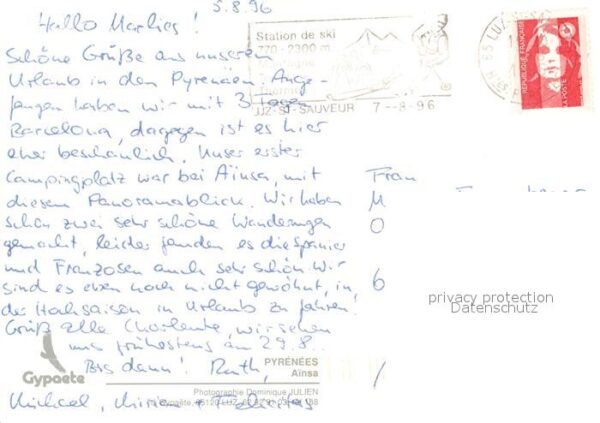 5.8.96
Hallo Marlies!
Schöne Grüße aus unserem
Urlaub in den Pyrenäen. Ange-
fangen haben wir mit 3 Tagen
Barcelona, dagegen ist es hier
eher beschaulich. Unser erster
Campingplatz war bei Aïnsa, mit
diesem Panoramablick. Wir haben
schon zwei sehr schöne Wanderungen
gemacht, leider fanden es die Spanier
und Franzosen auch sehr schön. Wir
sind es eben noch nicht gewöhnt, in
der Hochsaison in Urlaub zu fahren.
Grüß alle Chorleute, wir sehen
uns frühestens am 29.8..
Bis dann! Ruth,
Michael, Miriam + Felicitas
Station de ski
770-2300 m
LUZ-ST-SAUVEUR 7--8-96
65 LUZ
REPUBLIQUE FRANÇAISE
LA POSTE
Frau
M
O
6
privacy protection
Datenschutz
Gypaete
PYRÉNÉES
Aïnsa
Photographie Dominique JULIEN
65120 LUZ